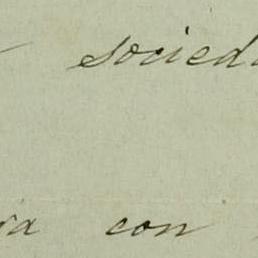 socied
ra con